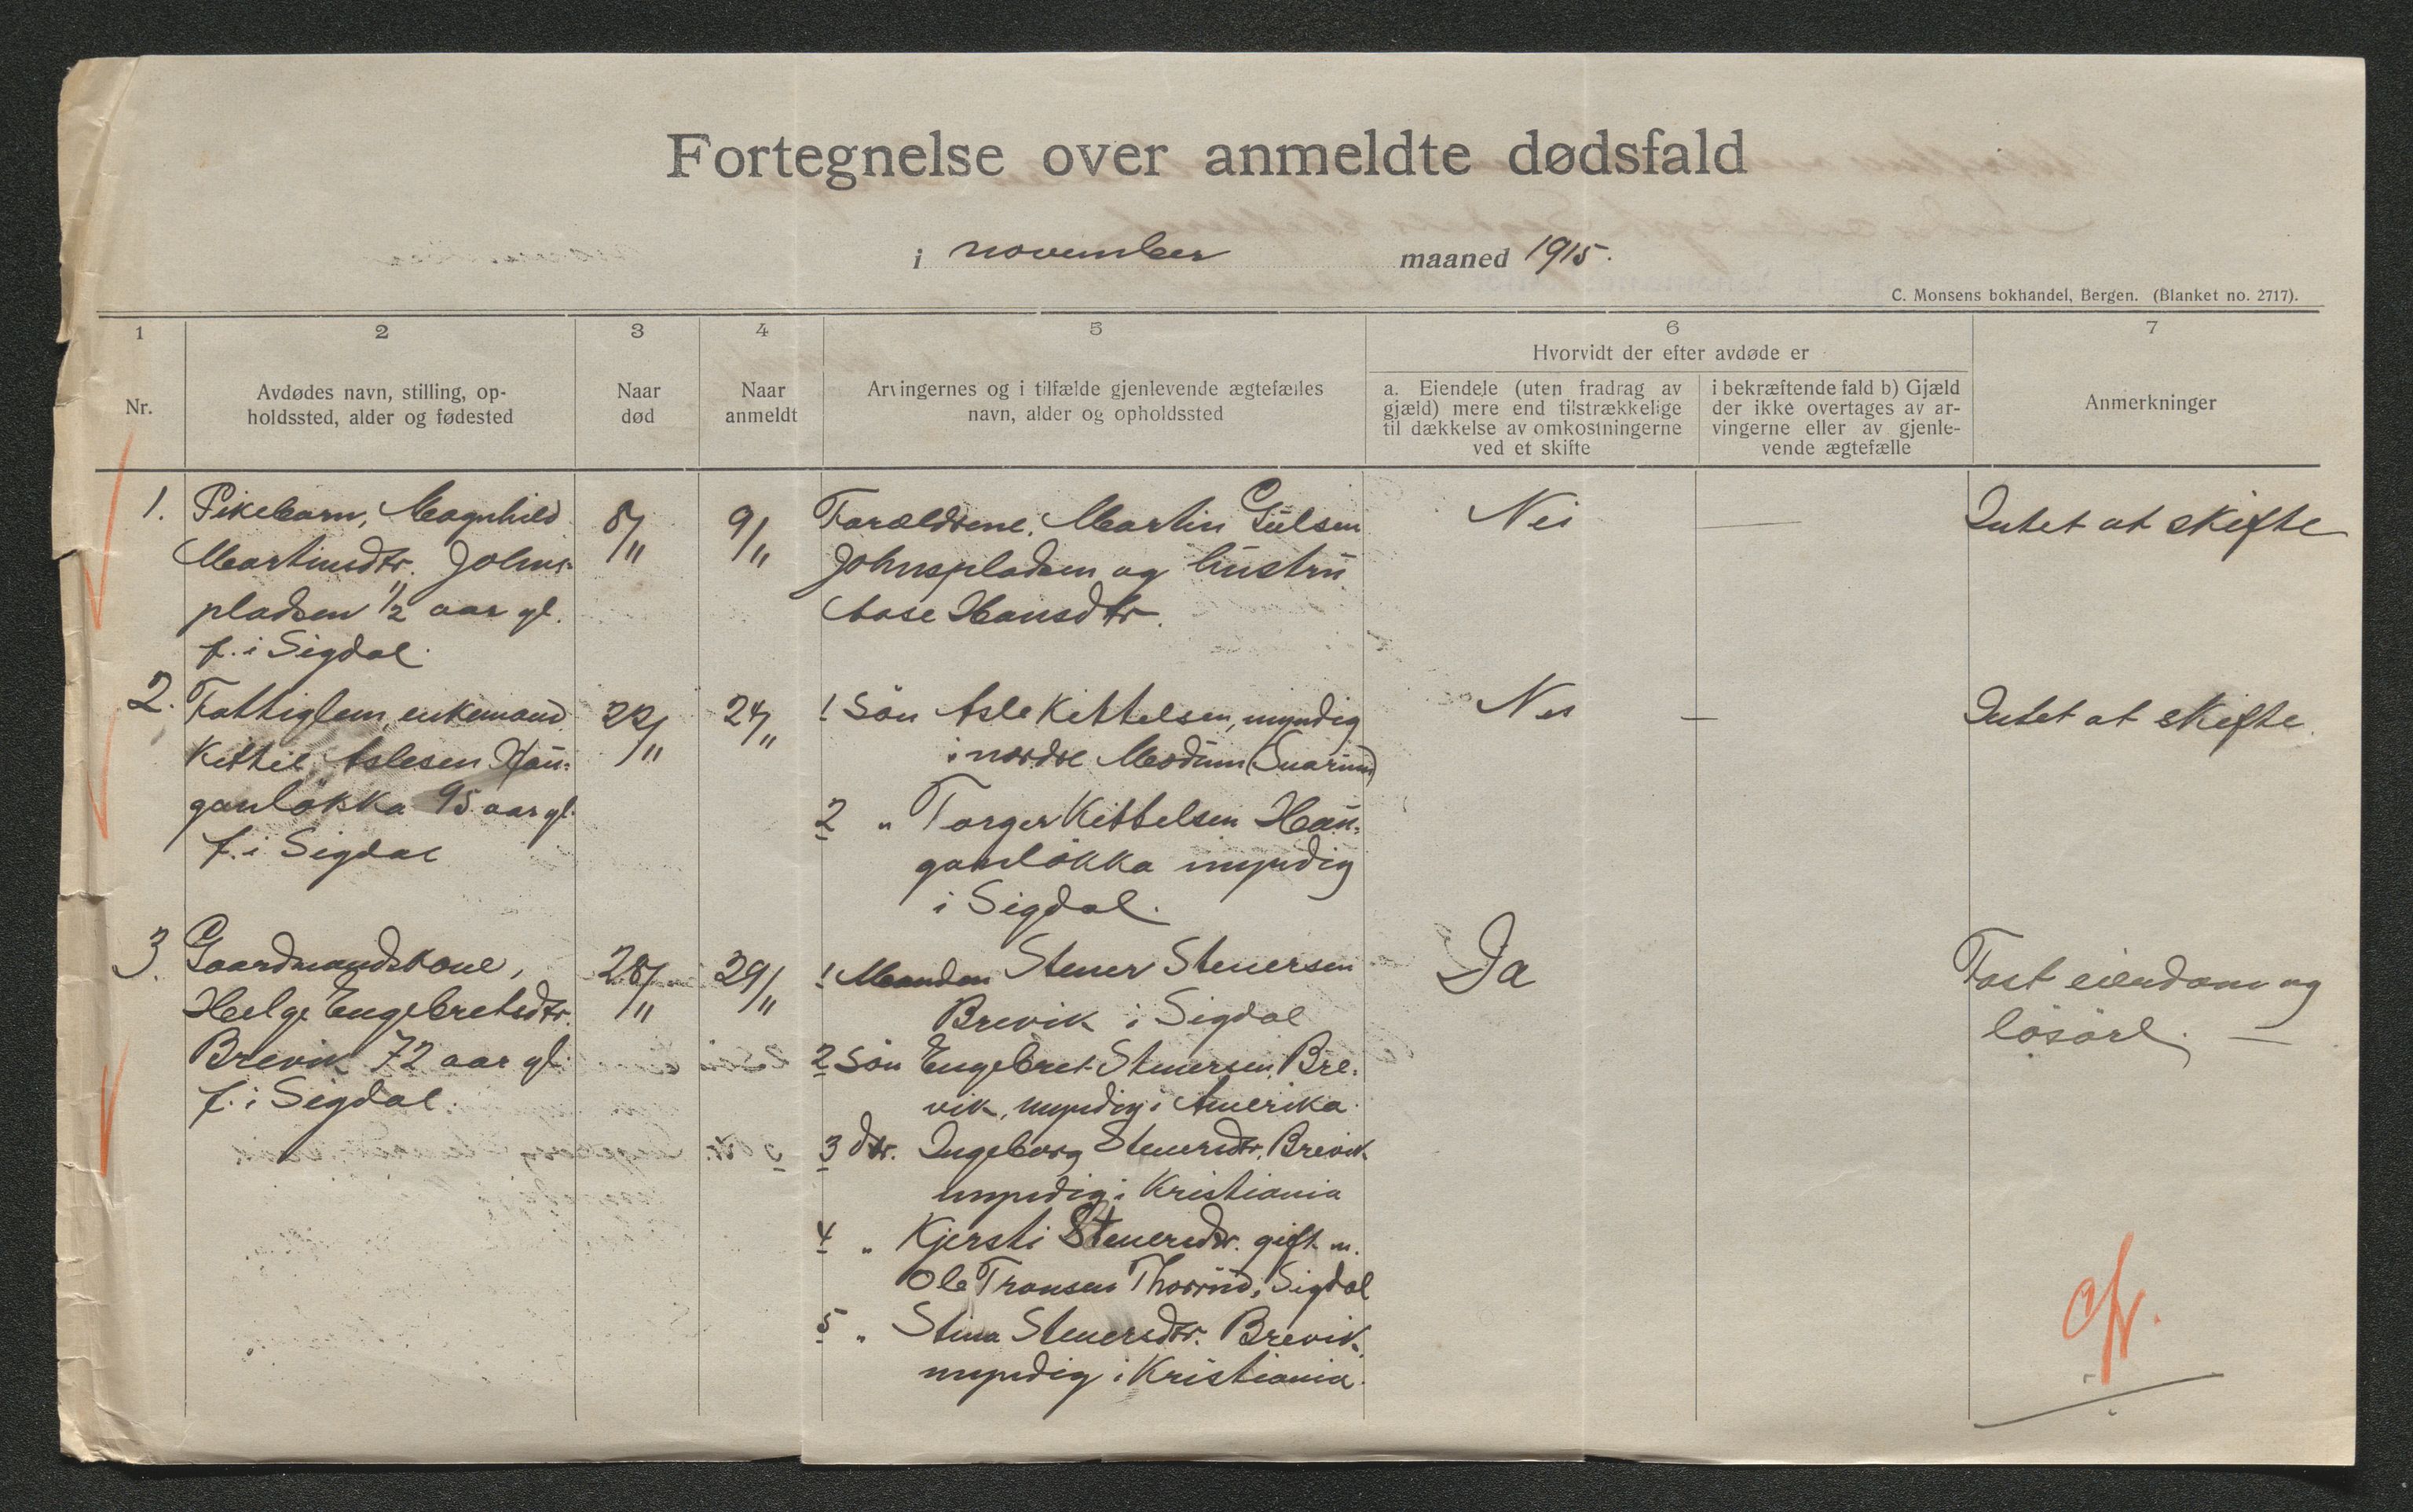 Fortegnelse over anmeldte dødsfald
i november maaned 1915.
C. Monsens bokhandel, Bergen. (Blanket no. 2717).
1 2 3 4 5 6 7
Nr.
Avdødes navn, stilling, op-
holdssted, alder og fødested
Naar
død
Naar
anmeldt
Arvingernes og i tilfælde gjenlevende ægtefælles
navn, alder og opholdssted
Hvorvidt der efter avdøde er
a. Eiendele (uten fradrag av
gjæld) mere end tilstrækkelige
til dækkelse av omkostningerne
ved et skifte
i bekræftende fald b) Gjæld
der ikke overtages av ar-
vingerne eller av gjenle-
vende ægtefælle
Anmerkninger
1. Pikebarn, Magnhild
Martinsdtr. Johns-
pladsen 1/2 aar gl.
f. i Sigdal.
8/11
9/11
Forældrene. Martin Gulsen
Johnspladsen og hustru
Aase Hansdtr.
Nei
—
Intet at skifte
2. Fattiglem, enkemand
Kittil Aslesen Hau-
ganløkka 95 aar gl.
f. i Sigdal
22/11
24/11
1 Søn Asle Kittelsen, myndig
i nordre Modum (Snarum)
2 " Torger Kittelsen Hau-
ganløkka myndig
i Sigdal.
Nei
—
Intet at skifte.
3. Gaardmandskone,
Helge Engebretsdtr.
Brevik 72 aar gl.
f. i Sigdal.
28/11
29/11
1 Manden Stener Stenersen
Brevik i Sigdal
2 Søn Engebret Stenersen Bre-
vik, myndig i Amerika.
3 dtr. Ingeborg Stenersdtr. Brevik
myndig i Kristiania
4 " Kjersti Stenersdtr. gift m.
Ole Transen Thorrud, Sigdal
5 " Stina Stenersdtr. Brevik,
myndig i Kristiania.
Da
Fast eiendom og
løsøre. —